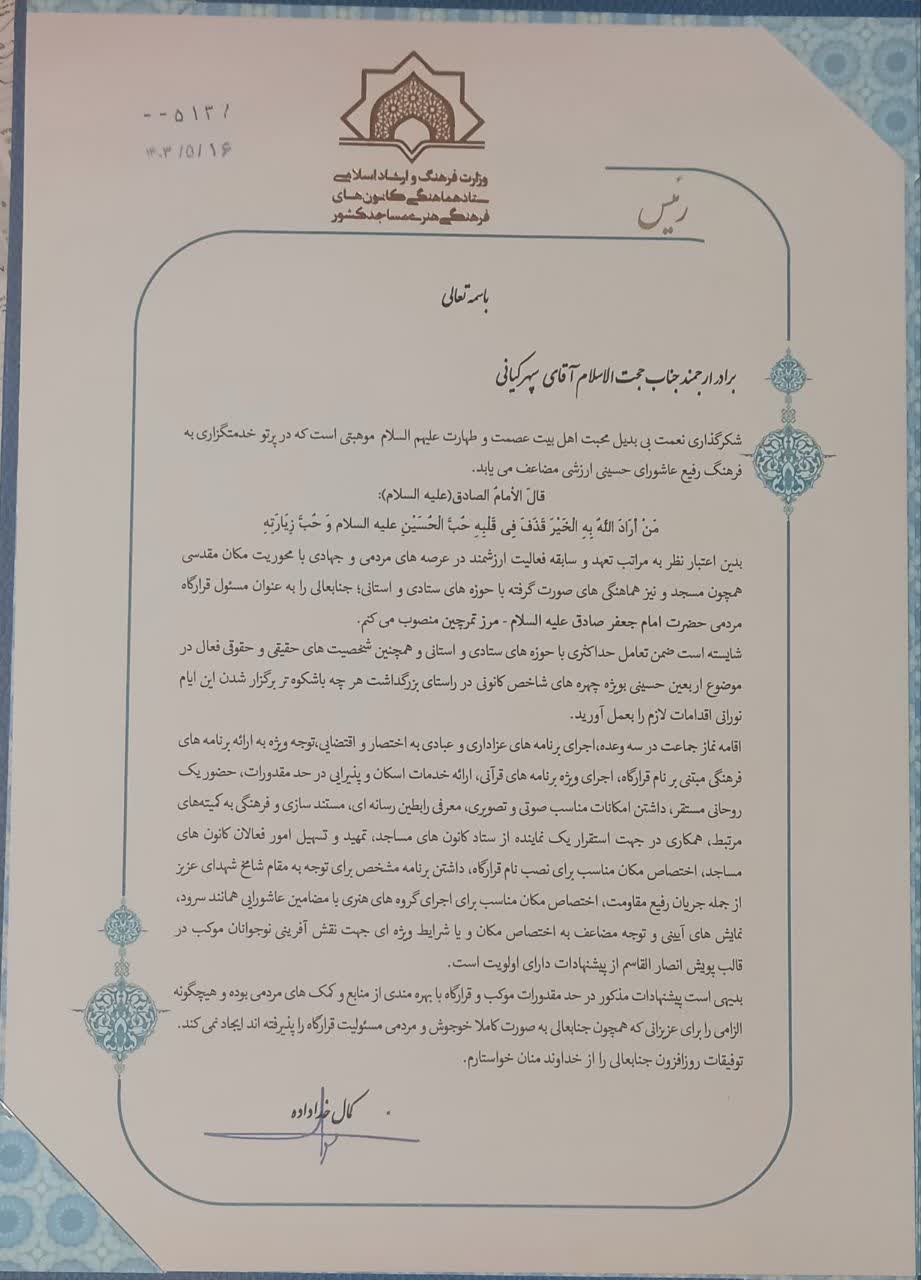 ۵۱۳۱--
۱۴۰۳/۵/۱۶
وزارت فرهنگ و ارشاد اسلامی
ستاد هماهنگی کانون های
فرهنگی هنری مساجد کشور
رئیس
باسمه تعالی
برادر ارجمند جناب حجت الاسلام آقای سپهر کیانی
شکرگذاری نعمت بی بدیل محبت اهل بیت عصمت و طهارت علیهم السلام موهبتی است که در پرتو خدمتگزاری به
فرهنگ رفیع عاشورای حسینی ارزشی مضاعف می یابد.
قالَ الأمامُ الصادق(علیه السلام):
مَنْ أرَادَ اللهُ بِهِ الْخَیْرَ قَذَفَ فِی قَلْبِهِ حُبَّ الْحُسَیْنِ علیه السلام وَ حُبَّ زِیَارَتِهِ
بدین اعتبار نظر به مراتب تعهد و سابقه فعالیت ارزشمند در عرصه های مردمی و جهادی با محوریت مکان مقدسی
همچون مسجد و نیز هماهنگی های صورت گرفته با حوزه های ستادی و استانی؛ جنابعالی را به عنوان مسئول قرارگاه
مردمی حضرت امام جعفر صادق علیه السلام - مرز تمرچین منصوب می کنم.
شایسته است ضمن تعامل حداکثری با حوزه های ستادی و استانی و همچنین شخصیت های حقیقی و حقوقی فعال در
موضوع اربعین حسینی بویژه چهره های شاخص کانونی در راستای بزرگداشت هر چه باشکوه تر برگزار شدن این ایام
نورانی اقدامات لازم را بعمل آورید.
اقامه نماز جماعت در سه وعده،اجرای برنامه های عزاداری و عبادی به اختصار و اقتضایی،توجه ویژه به ارائه برنامه های
فرهنگی مبتنی بر نام قرارگاه، اجرای ویژه برنامه های قرآنی، ارائه خدمات اسکان و پذیرایی در حد مقدورات، حضور یک
روحانی مستقر، داشتن امکانات مناسب صوتی و تصویری، معرفی رابطین رسانه ای، مستند سازی و فرهنگی به کمیته‌های
مرتبط، همکاری در جهت استقرار یک نماینده از ستاد کانون های مساجد، تمهید و تسهیل امور فعالان کانون های
مساجد، اختصاص مکان مناسب برای نصب نام قرارگاه، داشتن برنامه مشخص برای توجه به مقام شامخ شهدای عزیز
از جمله جریان رفیع مقاومت، اختصاص مکان مناسب برای اجرای گروه های هنری با مضامین عاشورایی همانند سرود،
نمایش های آیینی و توجه مضاعف به اختصاص مکان و یا شرایط ویژه ای جهت نقش آفرینی نوجوانان موکب در
قالب پویش انصار القاسم از پیشنهادات دارای اولویت است.
بدیهی است پیشنهادات مذکور در حد مقدورات موکب و قرارگاه با بهره مندی از منابع و کمک های مردمی بوده و هیچگونه
الزامی را برای عزیزانی که همچون جنابعالی به صورت کاملا خوجوش و مردمی مسئولیت قرارگاه را پذیرفته اند ایجاد نمی کند.
توفیقات روزافزون جنابعالی را از خداوند منان خواستارم.
کمال خداداده